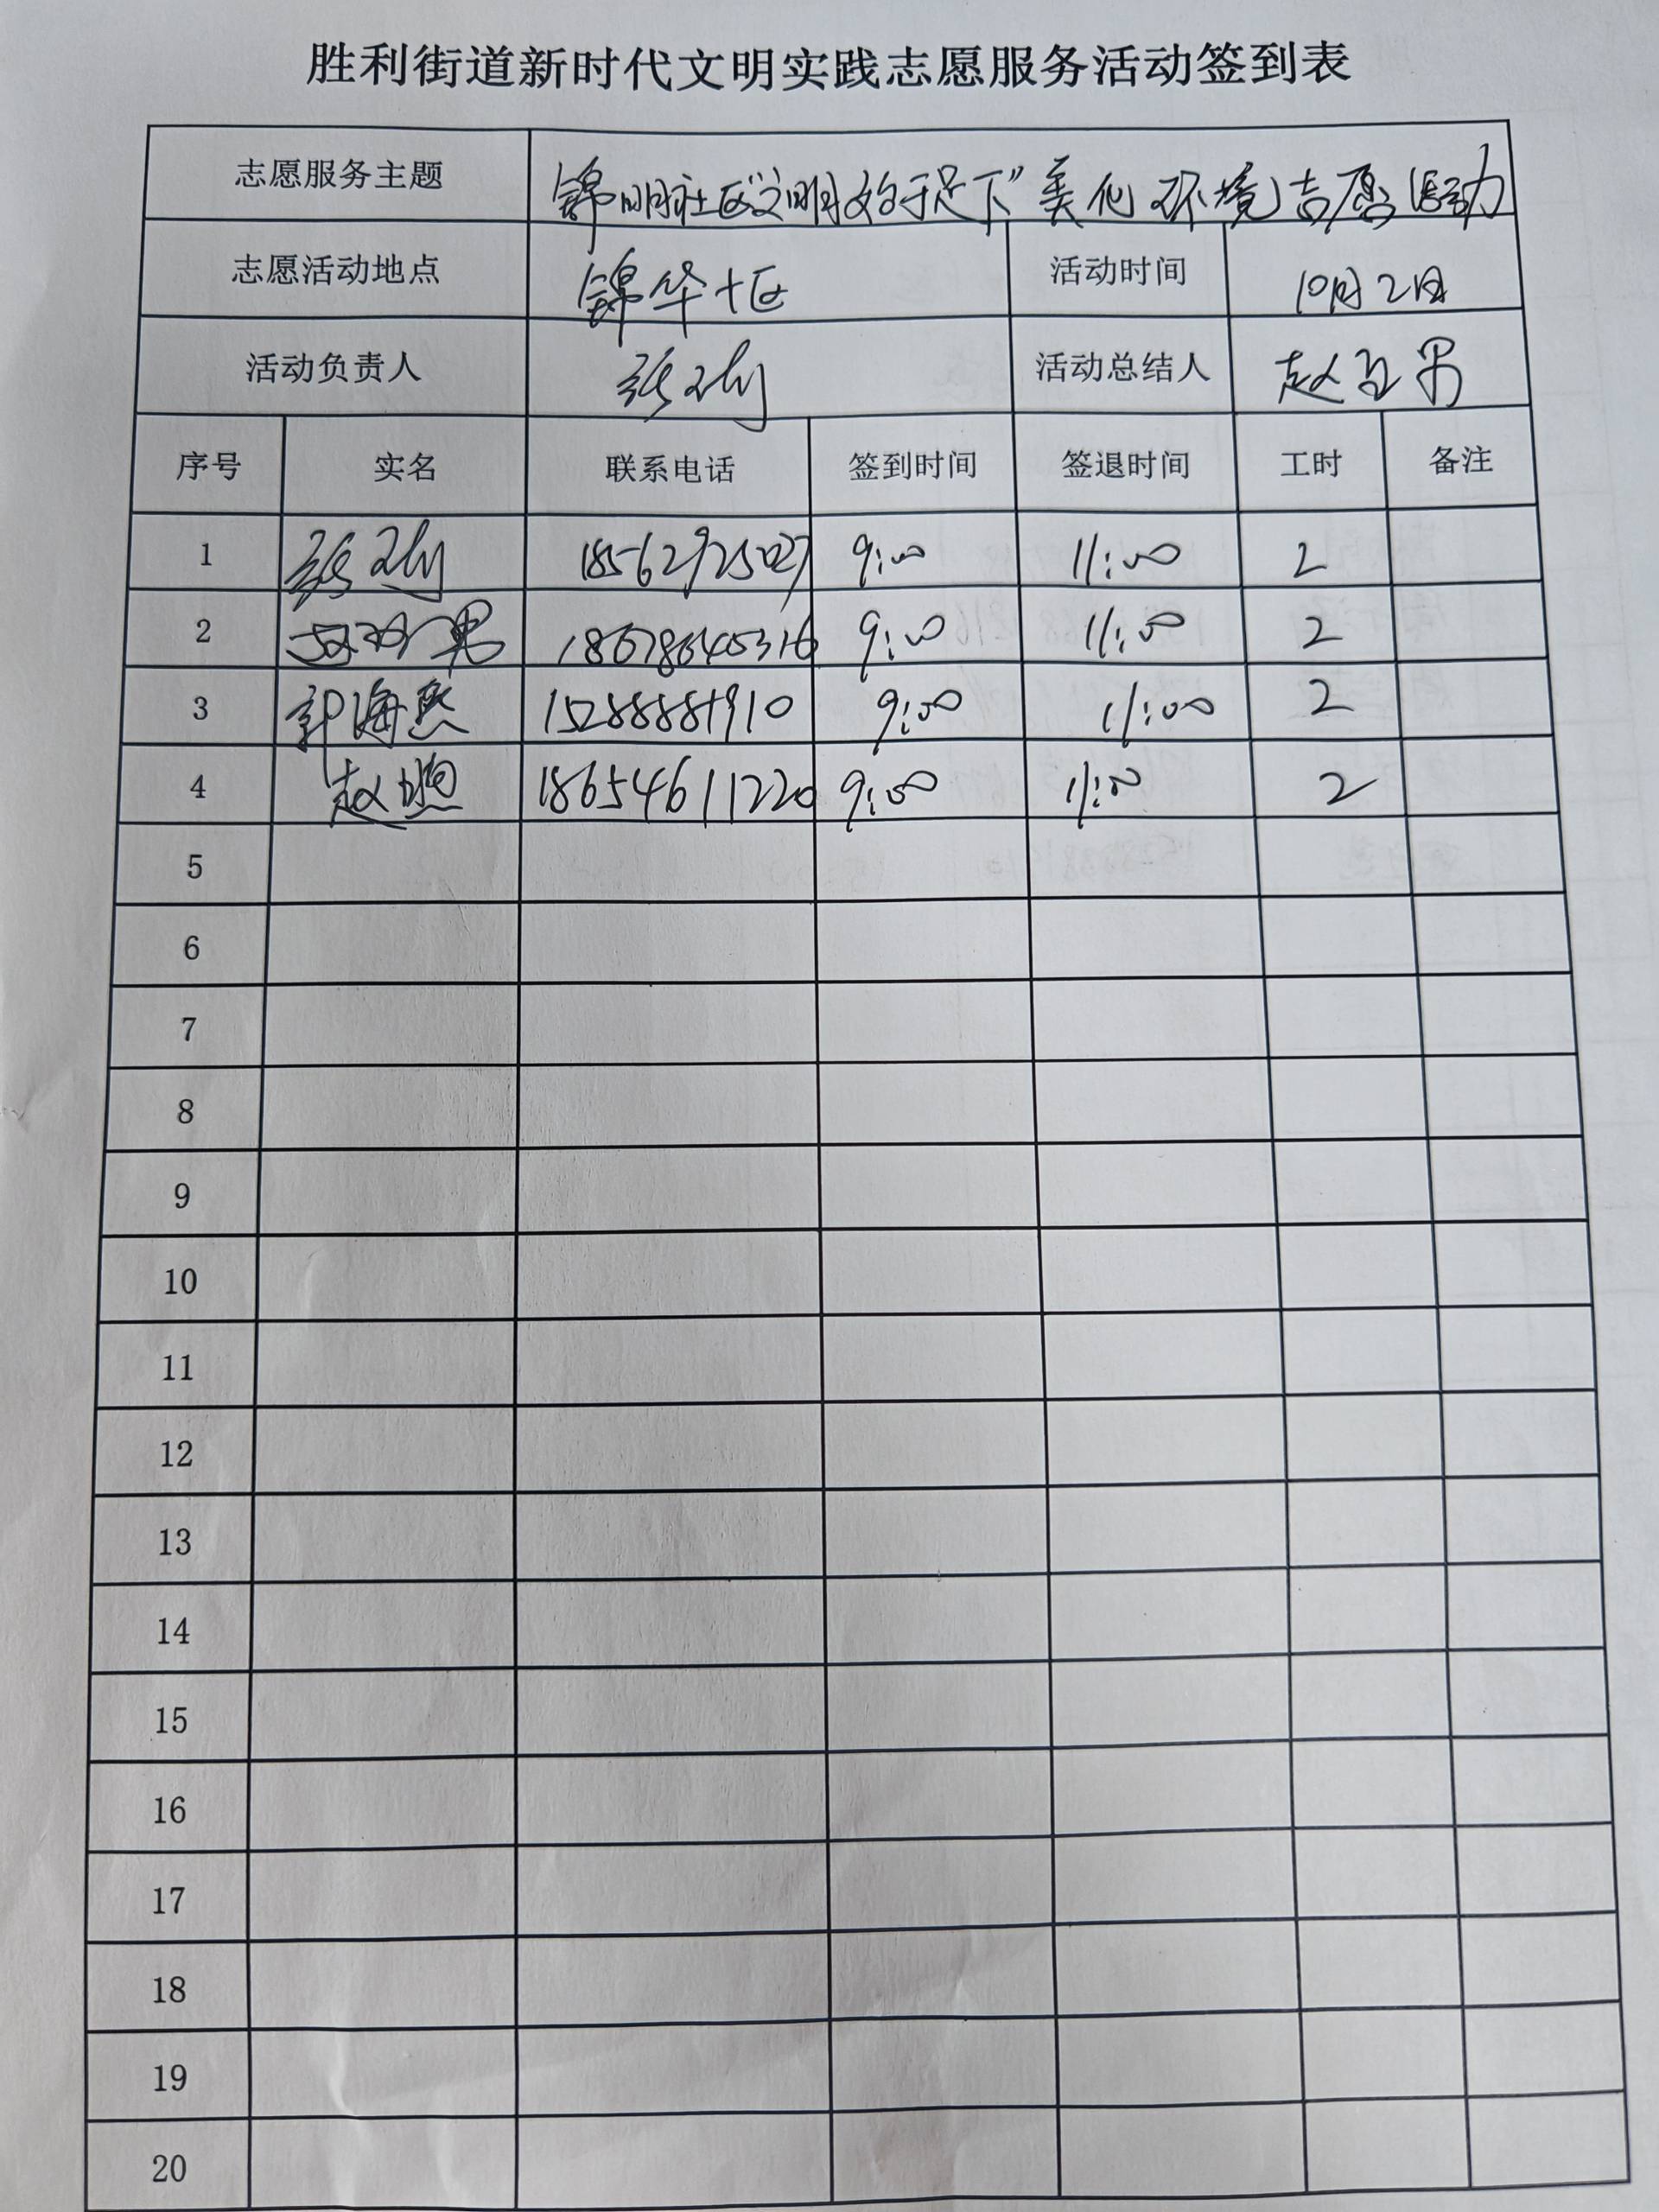 胜利街道新时代文明实践志愿服务活动签到表
志愿服务主题 锦明社区"文明始于足下"美化环境志愿活动
志愿活动地点 锦华十区 活动时间 10月2日
活动负责人 活动总结人 赵
序号 实名 联系电话 签到时间 签退时间 工时 备注
1 18562925027 9:00 11:00 2
2 18678645316 9:00 11:00 2
3 郭海燕 15288881910 9:00 11:00 2
4 赵 18654611220 9:00 11:00 2
5
6
7
8
9
10
11
12
13
14
15
16
17
18
19
20